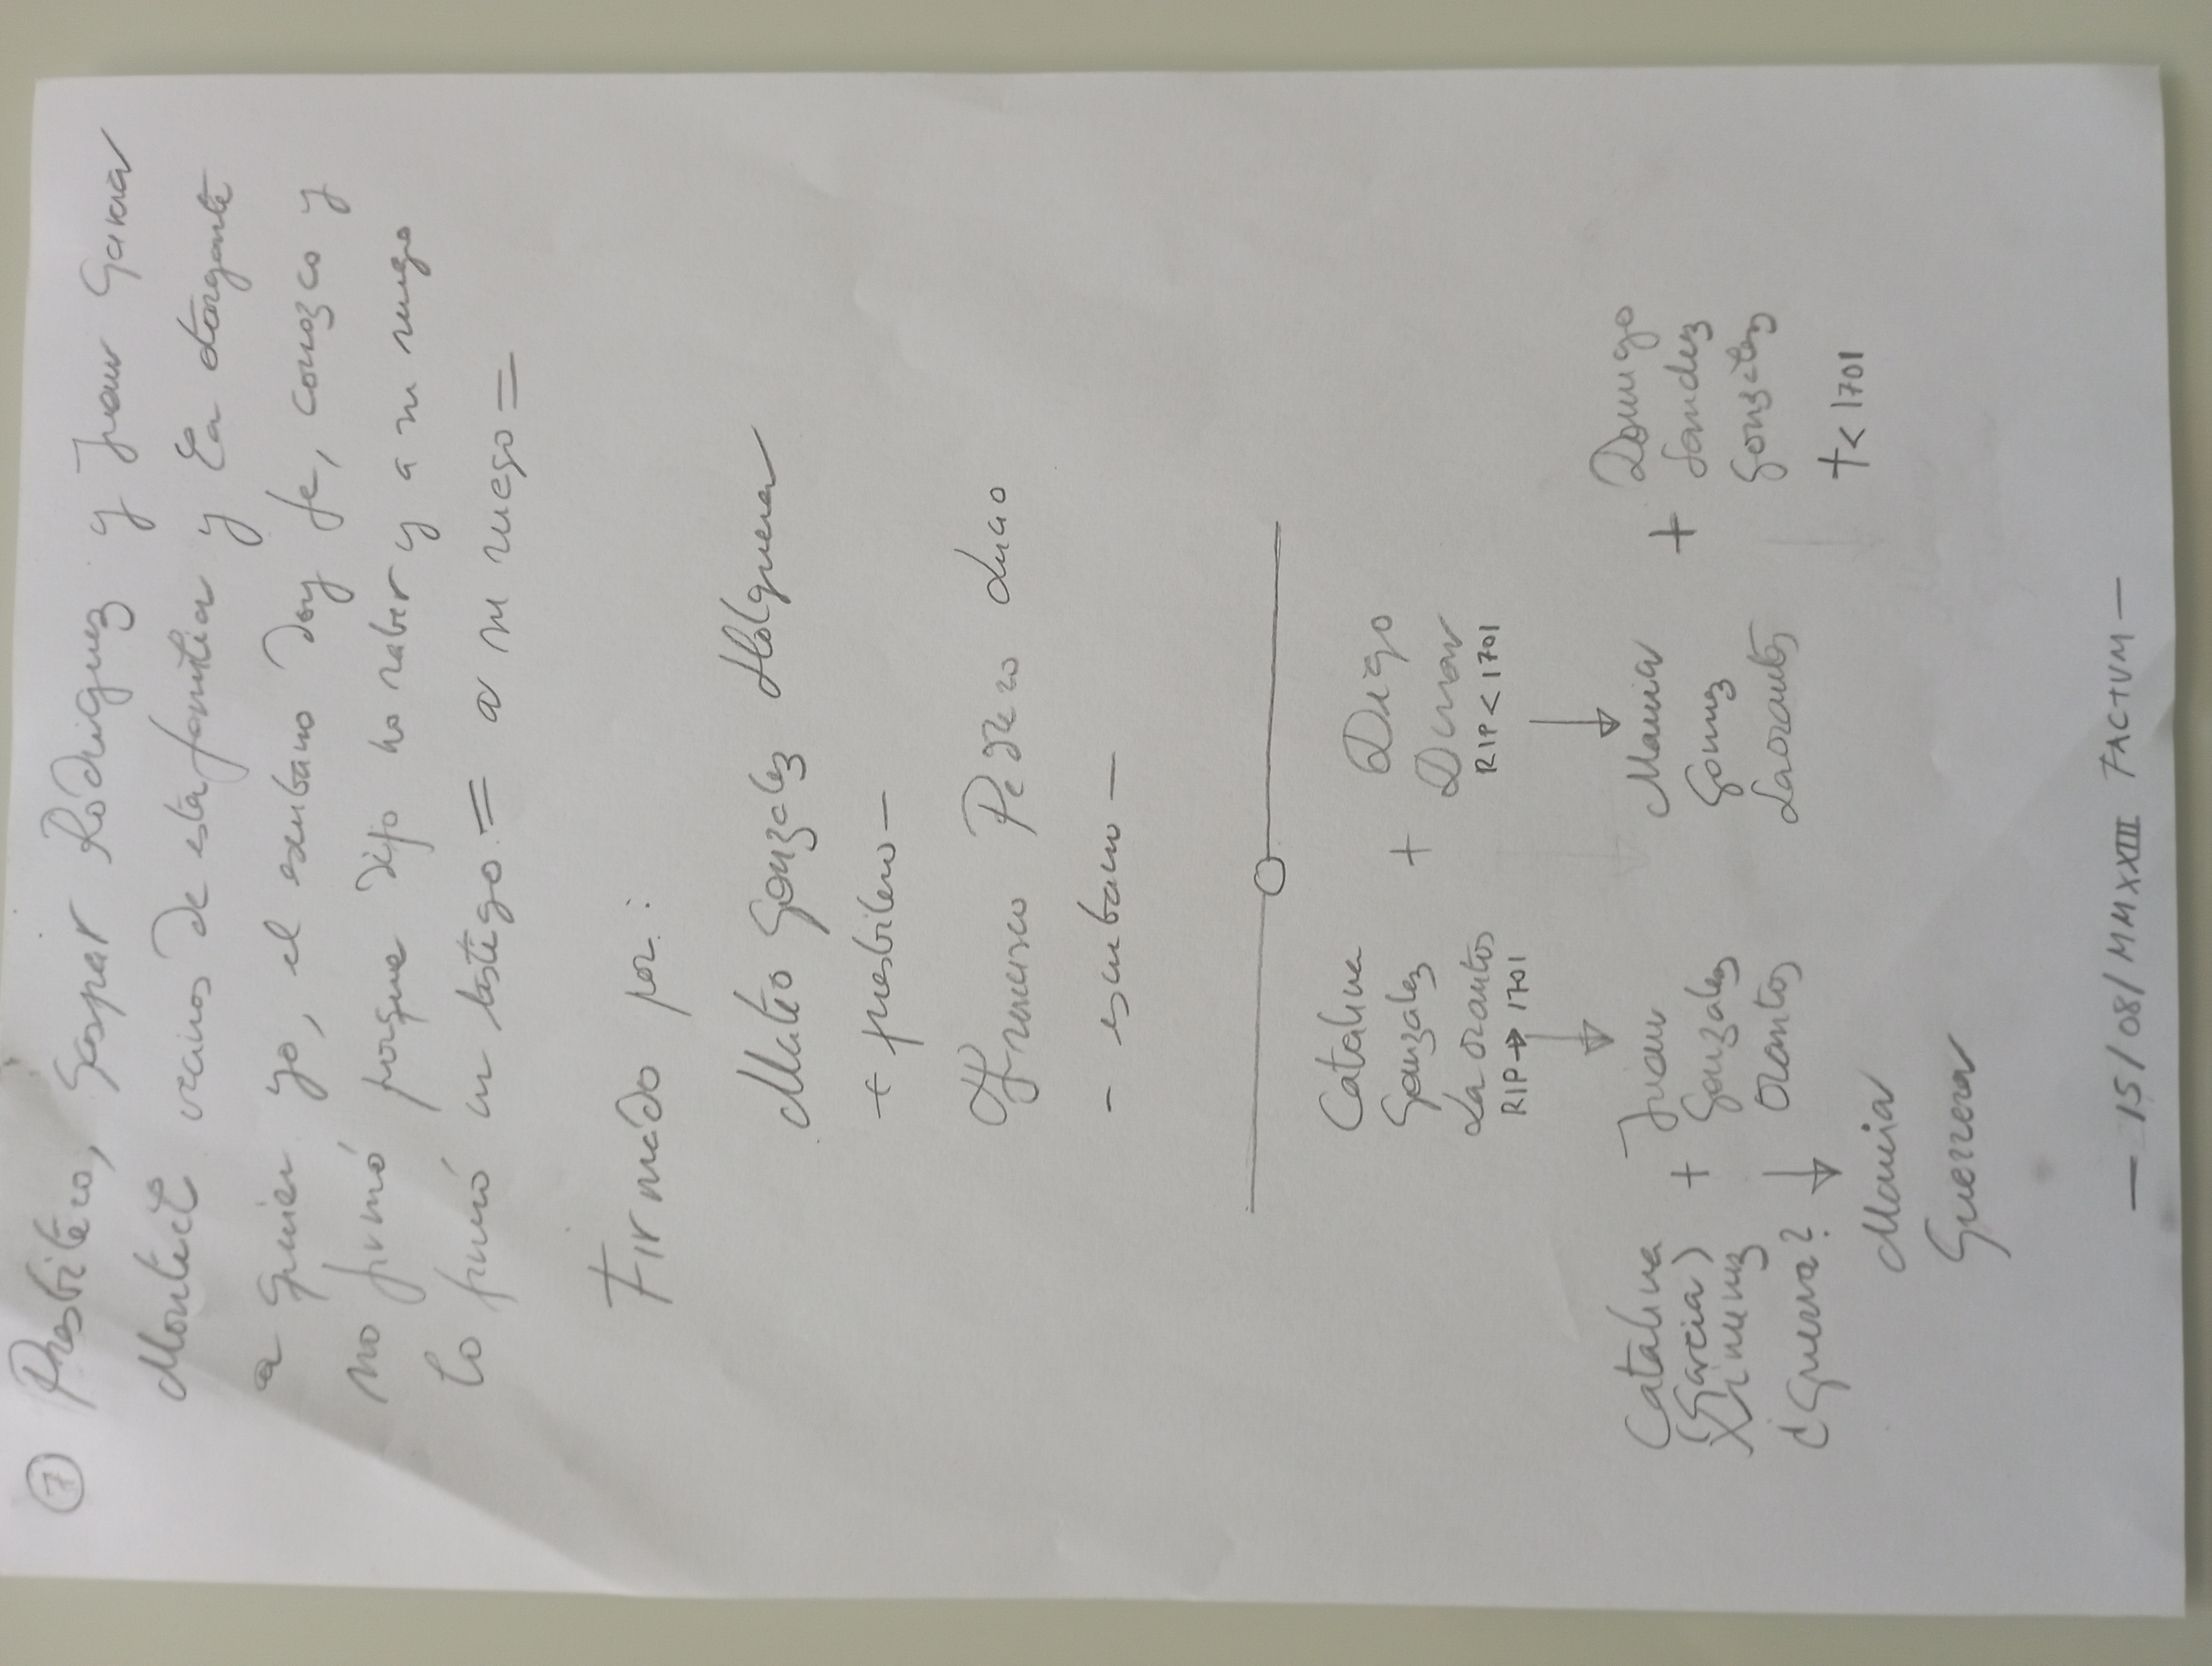 7 Presbitero, Gaspar Rodriguez y Juan Garcia
Montiel vecinos de esta familia y la otorgante
a quien yo, el escribano doy fe, conozco y
no firmó porque dijo no saber y a su ruego
lo firmó un testigo = a su ruego =
Firmado por:
Mateo Gonzalez Holguera
+ presbitero -
Francisco Pedrero Lucio
- escribano -
Catalina
Gonzalez
La Orantos
RIP → 1701
+
Digo
Duran
RIP < 1701
Catalina
(Garcia)
Ximenez
¿Guerra?
+
Juan
Gonzalez
Orantos
Maria
Gomez
Laorantos
+
Domigo
Sanchez
Gonzalez
†< 1701
Maria
Guerrera
- 15/08/MMXXIII FACTUM -